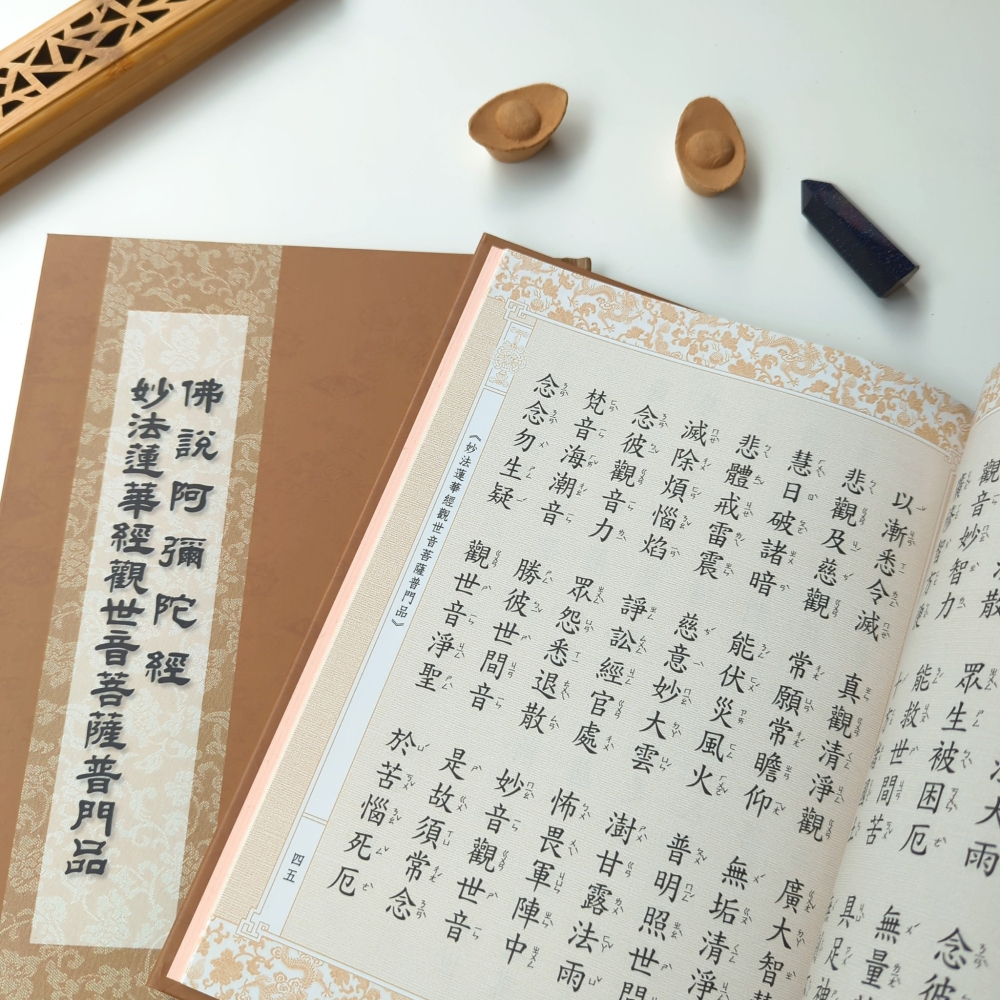 佛說阿彌陀經
妙法蓮華經觀世音菩薩普門品
雨 念彼
散 眾生被困厄 無量
觀音妙智力 能救世間苦 具足神
以漸悉令滅 真觀清淨觀 廣大智慧
悲觀及慈觀 常願常瞻仰 無垢清淨
慧日破諸暗 能伏災風火 普明照世間
悲體戒雷震 慈意妙大雲 澍甘露法雨
滅除煩惱焰 諍訟經官處 怖畏軍陣中
念彼觀音力 眾怨悉退散 妙音觀世音
梵音海潮音 勝彼世間音 是故須常念
念念勿生疑 觀世音淨聖 於苦惱死厄
《妙法蓮華經觀世音菩薩普門品》
四五